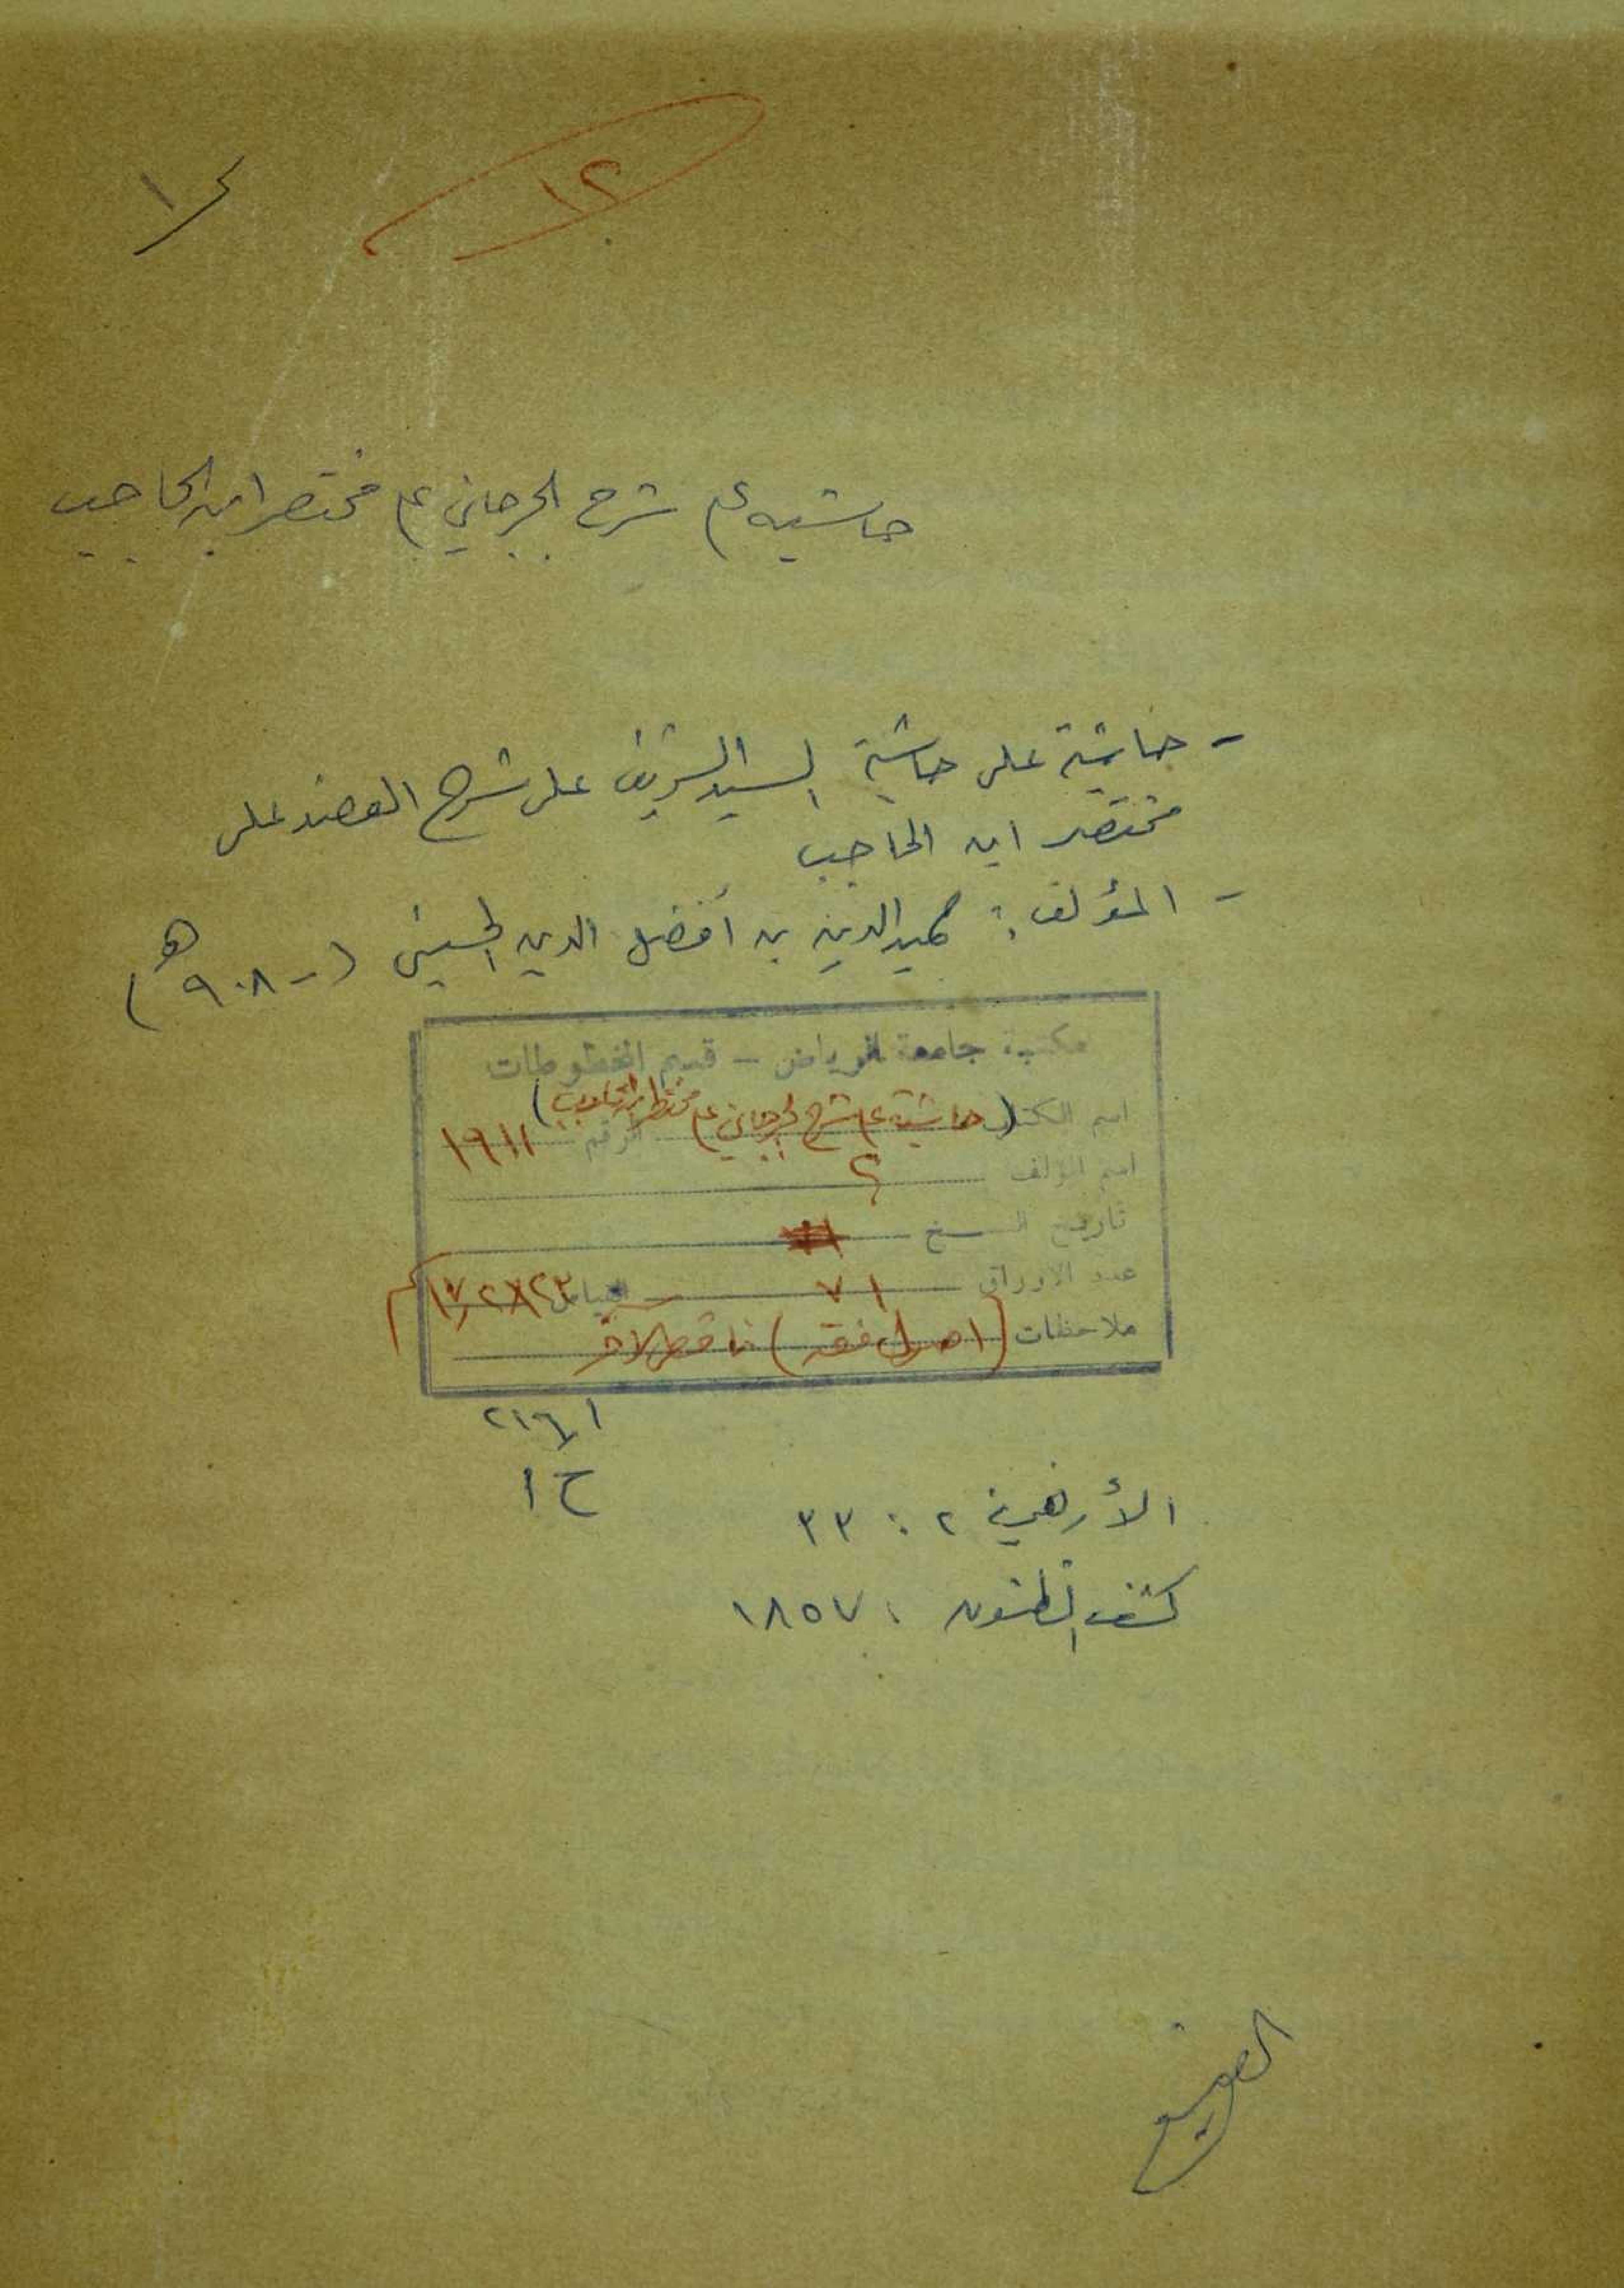 ١٢
١
حاشيه على شرح الجرجاني على مختصر ابن الحاجب
- حاشية على حاشية السيد الشريف على شرح العضد على
مختصر ابن الحاجب
- المؤلف: حميد الدين بن أفضل الدين الحسيني (- ٩٠٨ هـ)
مكتبة جامعة الرياض - قسم المخطوطات
اسم الكتاب (حاشية على شرح الجرجاني على مختصر ابن الحاجب) الرقم ١٩١١
اسم المؤلف ؟
تاريخ النسخ
عدد الاوراق ٧١ القياس
ملاحظات (اصول فقه) ناقص الآخر
٢١٦ر١
ح ١
الأزهرية ٢ : ٣٣
كشف الظنون : ١٨٥٧